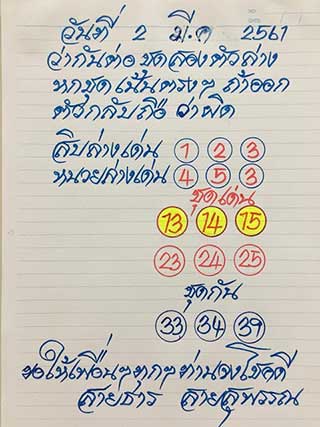 วันที่ 2 มี.ค 2561
ว่ากันต่อ ชุดสองตัวล่าง
หกชุด เน้นตรงๆ ถ้าออก
ตัวกลับถือ ว่าผิด
สิบล่างเด่น 1 2 3
หน่วยล่างเด่น 4 5 3
ชุดเด่น
13 14 15
23 24 25
ชุดกัน
33 34 39
ขอให้เพื่อนๆทุกๆท่านจงโชคดี
สายธาร สายสุพรรณ